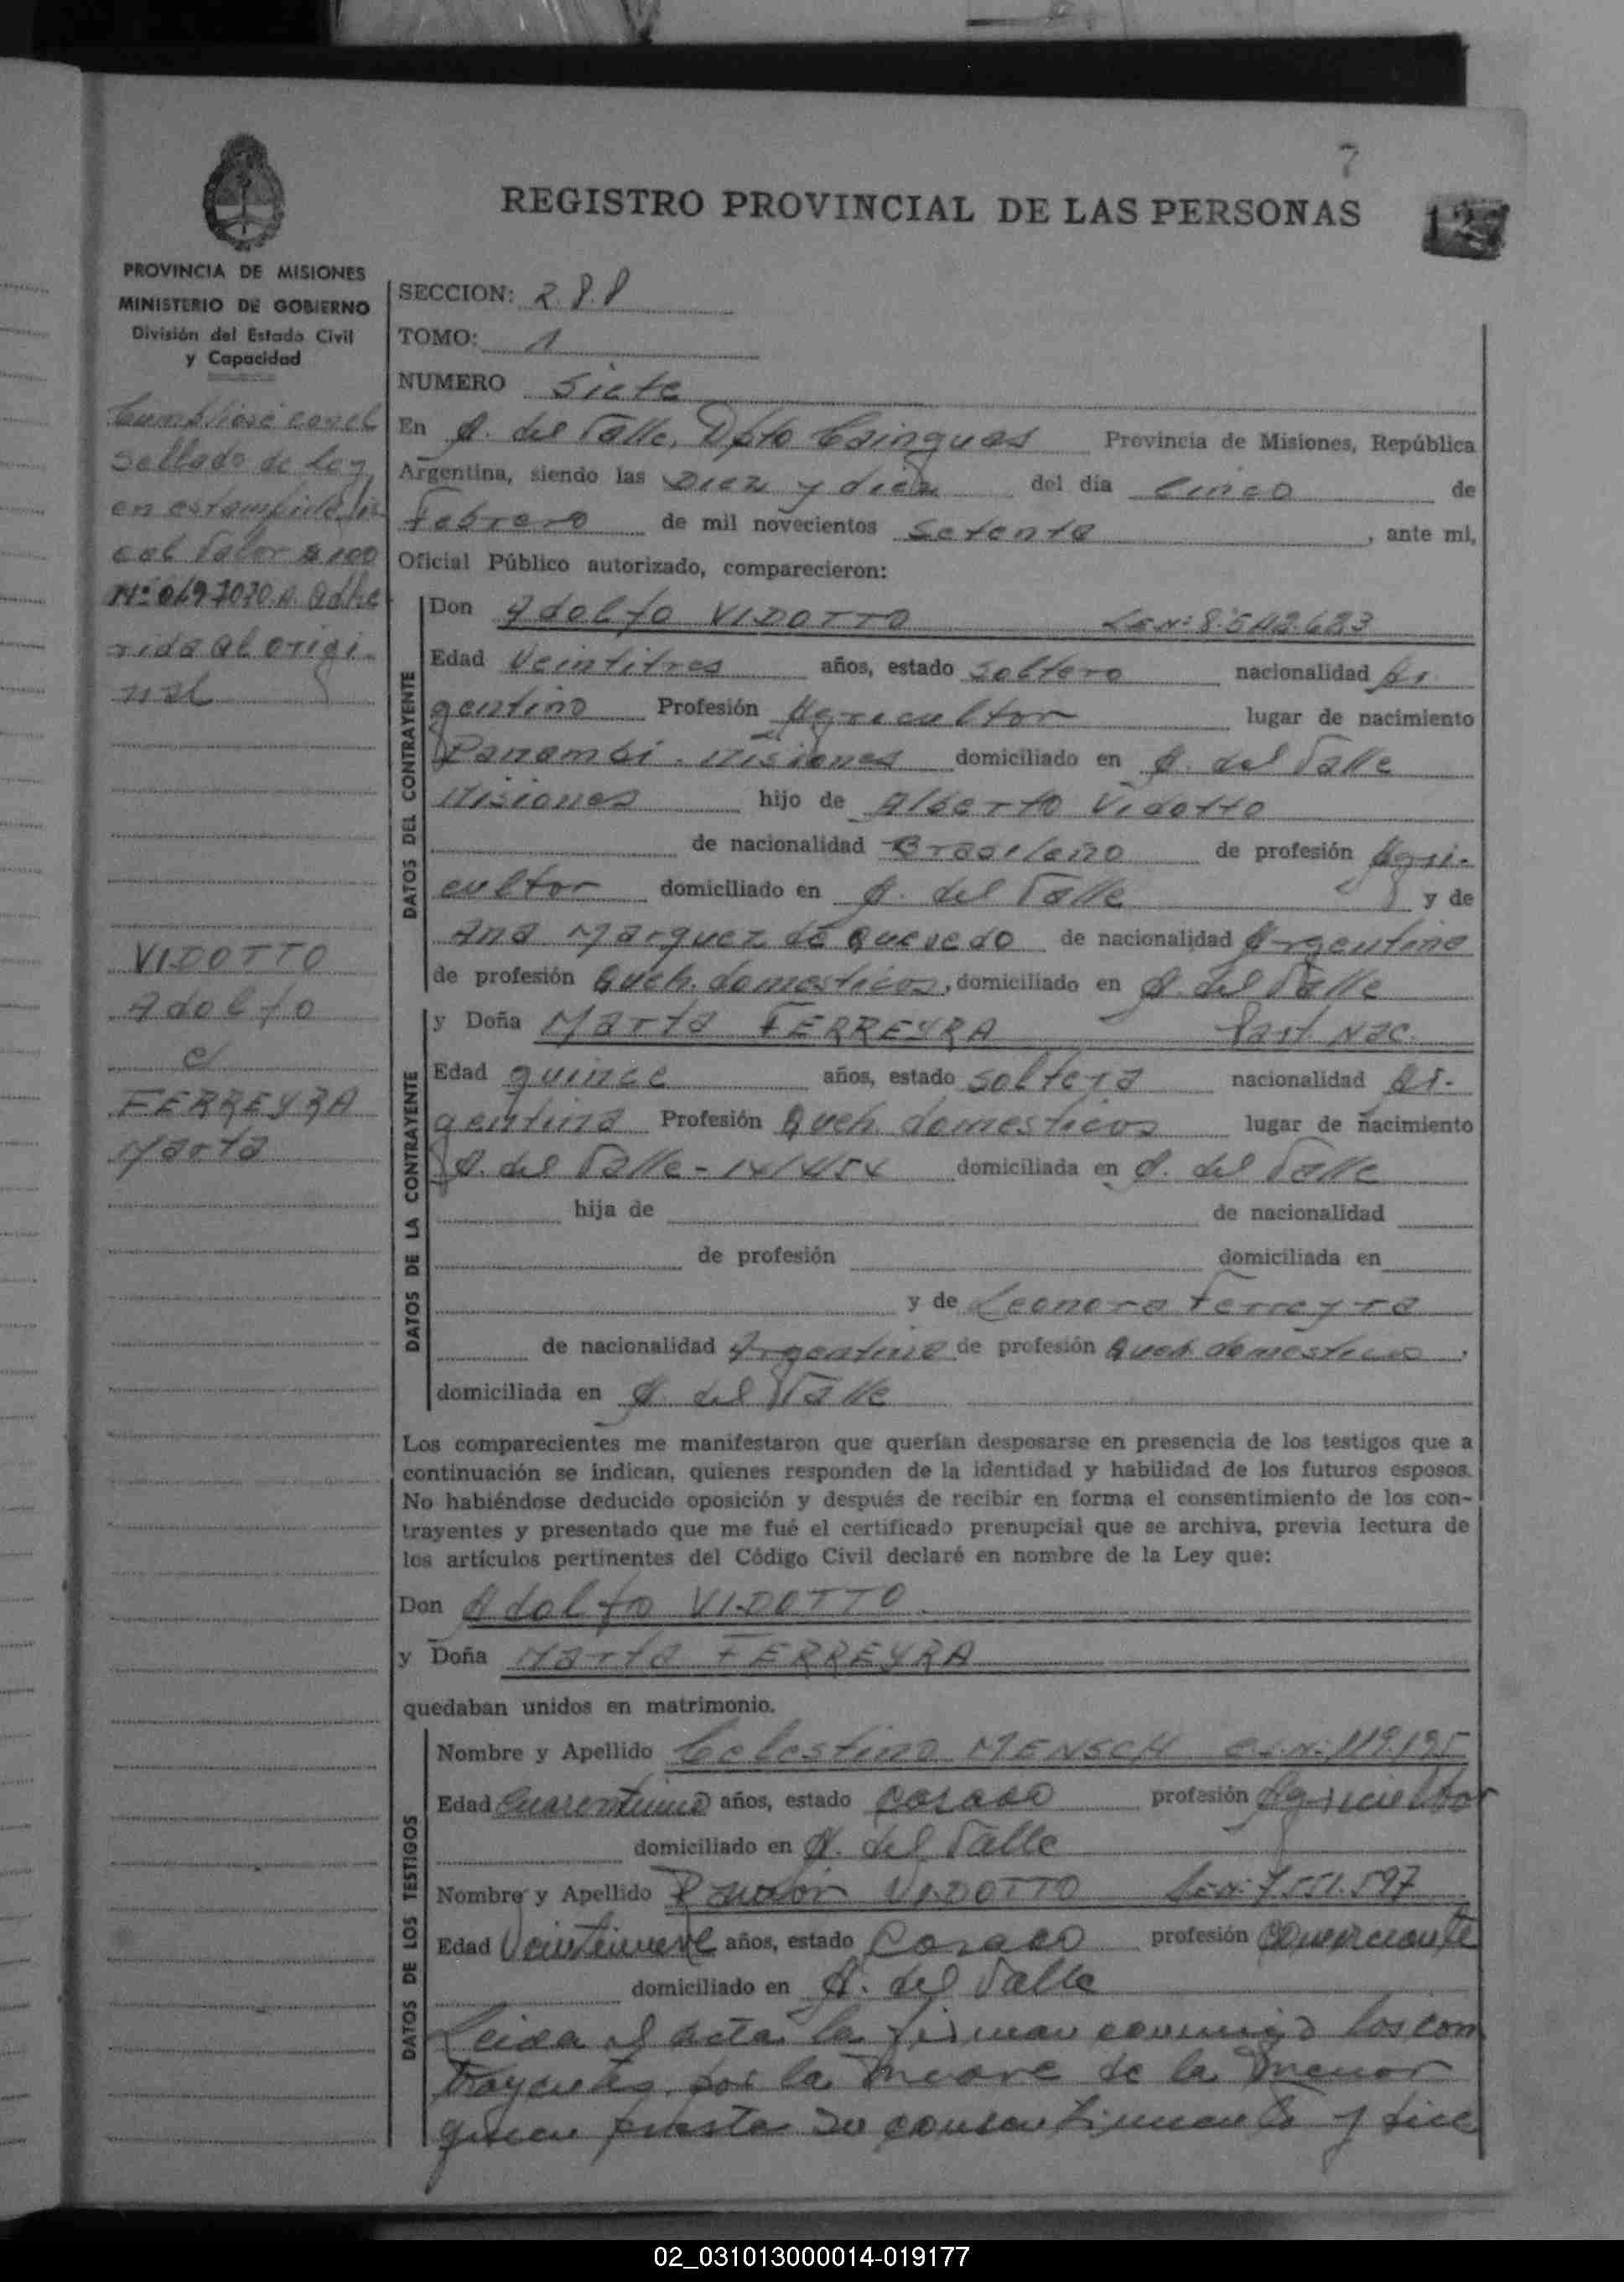 7
REGISTRO PROVINCIAL DE LAS PERSONAS
PROVINCIA DE MISIONES
MINISTERIO DE GOBIERNO
División del Estado Civil
y Capacidad
Cumpliose con el
sellado de Ley
en estampilla fis
cal Valor $ 100
adhe
rida al origi-
nal
VIDOTTO
Adolfo
c/
FERREYRA
Marta
SECCION: 288
TOMO: 1
NUMERO Siete
En A. del Valle, Dpto Cainguas Provincia de Misiones, República
Argentina, siendo las Diez y diez del día Cinco de
Febrero de mil novecientos Setenta , ante mí,
Oficial Público autorizado, comparecieron:
DATOS DEL CONTRAYENTE
Don Adolfo VIDOTTO L.E.Nº: 8.542.683
Edad Veintitres años, estado soltero nacionalidad Ar-
gentino Profesión Agricultor lugar de nacimiento
Panambi - Misiones domiciliado en A. del Valle
Misiones hijo de Alberto Vidotto
de nacionalidad Brasileño de profesión Agri-
cultor domiciliado en A. del Valle y de
Ana Marquez de Quevedo de nacionalidad Argentina
de profesión Queh. domesticos, domiciliado en A. del Valle
DATOS DE LA CONTRAYENTE
y Doña Marta FERREYRA Part. Nac.
Edad quince años, estado soltera nacionalidad Ar-
gentina Profesión Queh. domesticos lugar de nacimiento
A. del Valle - domiciliada en A. del Valle
hija de de nacionalidad
de profesión domiciliada en
y de Leonora Ferreyra
de nacionalidad Argentina de profesión Queh. domesticos,
domiciliada en A. del Valle
Los comparecientes me manifestaron que querían desposarse en presencia de los testigos que a
continuación se indican, quienes responden de la identidad y habilidad de los futuros esposos.
No habiéndose deducido oposición y después de recibir en forma el consentimiento de los con-
trayentes y presentado que me fué el certificado prenupcial que se archiva, previa lectura de
los artículos pertinentes del Código Civil declaré en nombre de la Ley que:
Don Adolfo VIDOTTO
y Doña Marta FERREYRA
quedaban unidos en matrimonio.
DATOS DE LOS TESTIGOS
Nombre y Apellido Celestino MENSCH C.I.Nº: 119.195
Edad años, estado casado profesión Agricultor
domiciliado en A. del Valle
Nombre y Apellido Ramón VIDOTTO L.E.Nº: 7.551.597
Edad Veintinueve años, estado Casado profesión Comerciante
domiciliado en A. del Valle
Leida el acta la firman conmigo los con
trayentes, por la madre de la menor
quien presta su consentimiento y dice
02_031013000014-019177